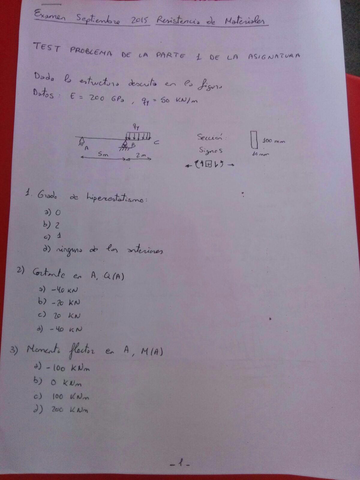 Examen Septiembre 2015 Resistencia de Materiales
TEST PROBLEMA DE LA PARTE 1 DE LA ASIGNATURA
Dada la estructura descrita en la figura
Datos: E = 200 GPa, q = 50 KN/m
q
A B C
5m 2m
Sección
Signos
100 mm
1 Grado de hiperestatismo:
a) 0
b) 2
c) 1
d) ninguna de las anteriores
2) Cortante en A, Q(A)
a) -40 KN
b) -20 KN
c) 20 KN
d) -40 KN
3) Momento flector en A, M(A)
a) -100 KNm
b) 0 KNm
c) 100 KNm
d) 200 KNm
-1-